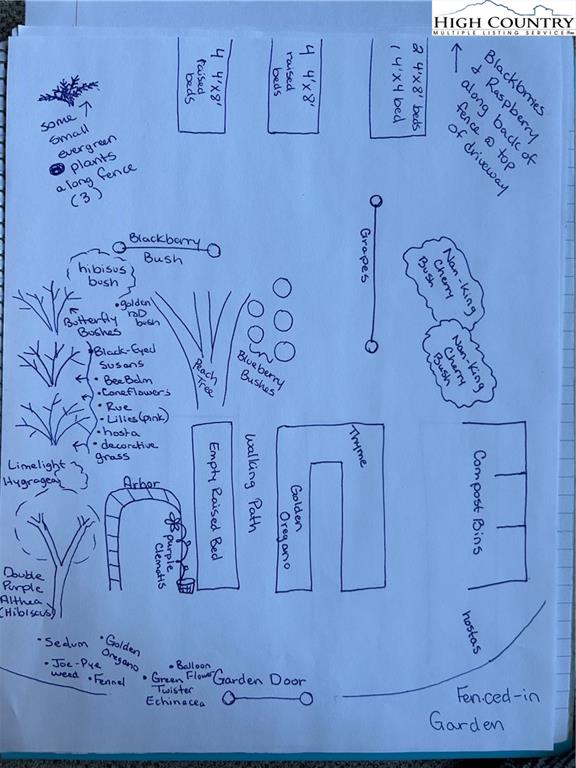 HIGH COUNTRY
MULTIPLE LISTING SERVICE
4 4'x8'
raised
beds
4 4'x8'
raised
beds
2 4'x8' beds
1 4'x4 bed
Blackberries
+ Raspberry
along back of
fence @ top
of driveway
some
small
evergreen
plants
along fence
(3)
Blackberry
Bush
hibisus
bush
Grapes
Nan-King
Cherry
Bush
Nan-King
Cherry
Bush
•golden
rod
bush
Butterfly
Bushes
Peach
Tree
Blueberry
Bushes
•Black-Eyed
Susans
•BeeBalm
•Coneflowers
•Rue
•Lilies(pink)
•hosta
•decorative
grass
Limelight
Hygragea
Arbor
Purple
Clematis
Empty Raised Bed
Walking Path
Golden
Oregano
Thyme
Compost Bins
Double
Purple
Althea
(Hibiscus)
hostas
•Sedum
•Golden
Oregano
•Joe-Pye
weed
•Fennel
•Balloon
Flower
•Green
Twister
Echinacea
Garden Door
Fenced-in
Garden